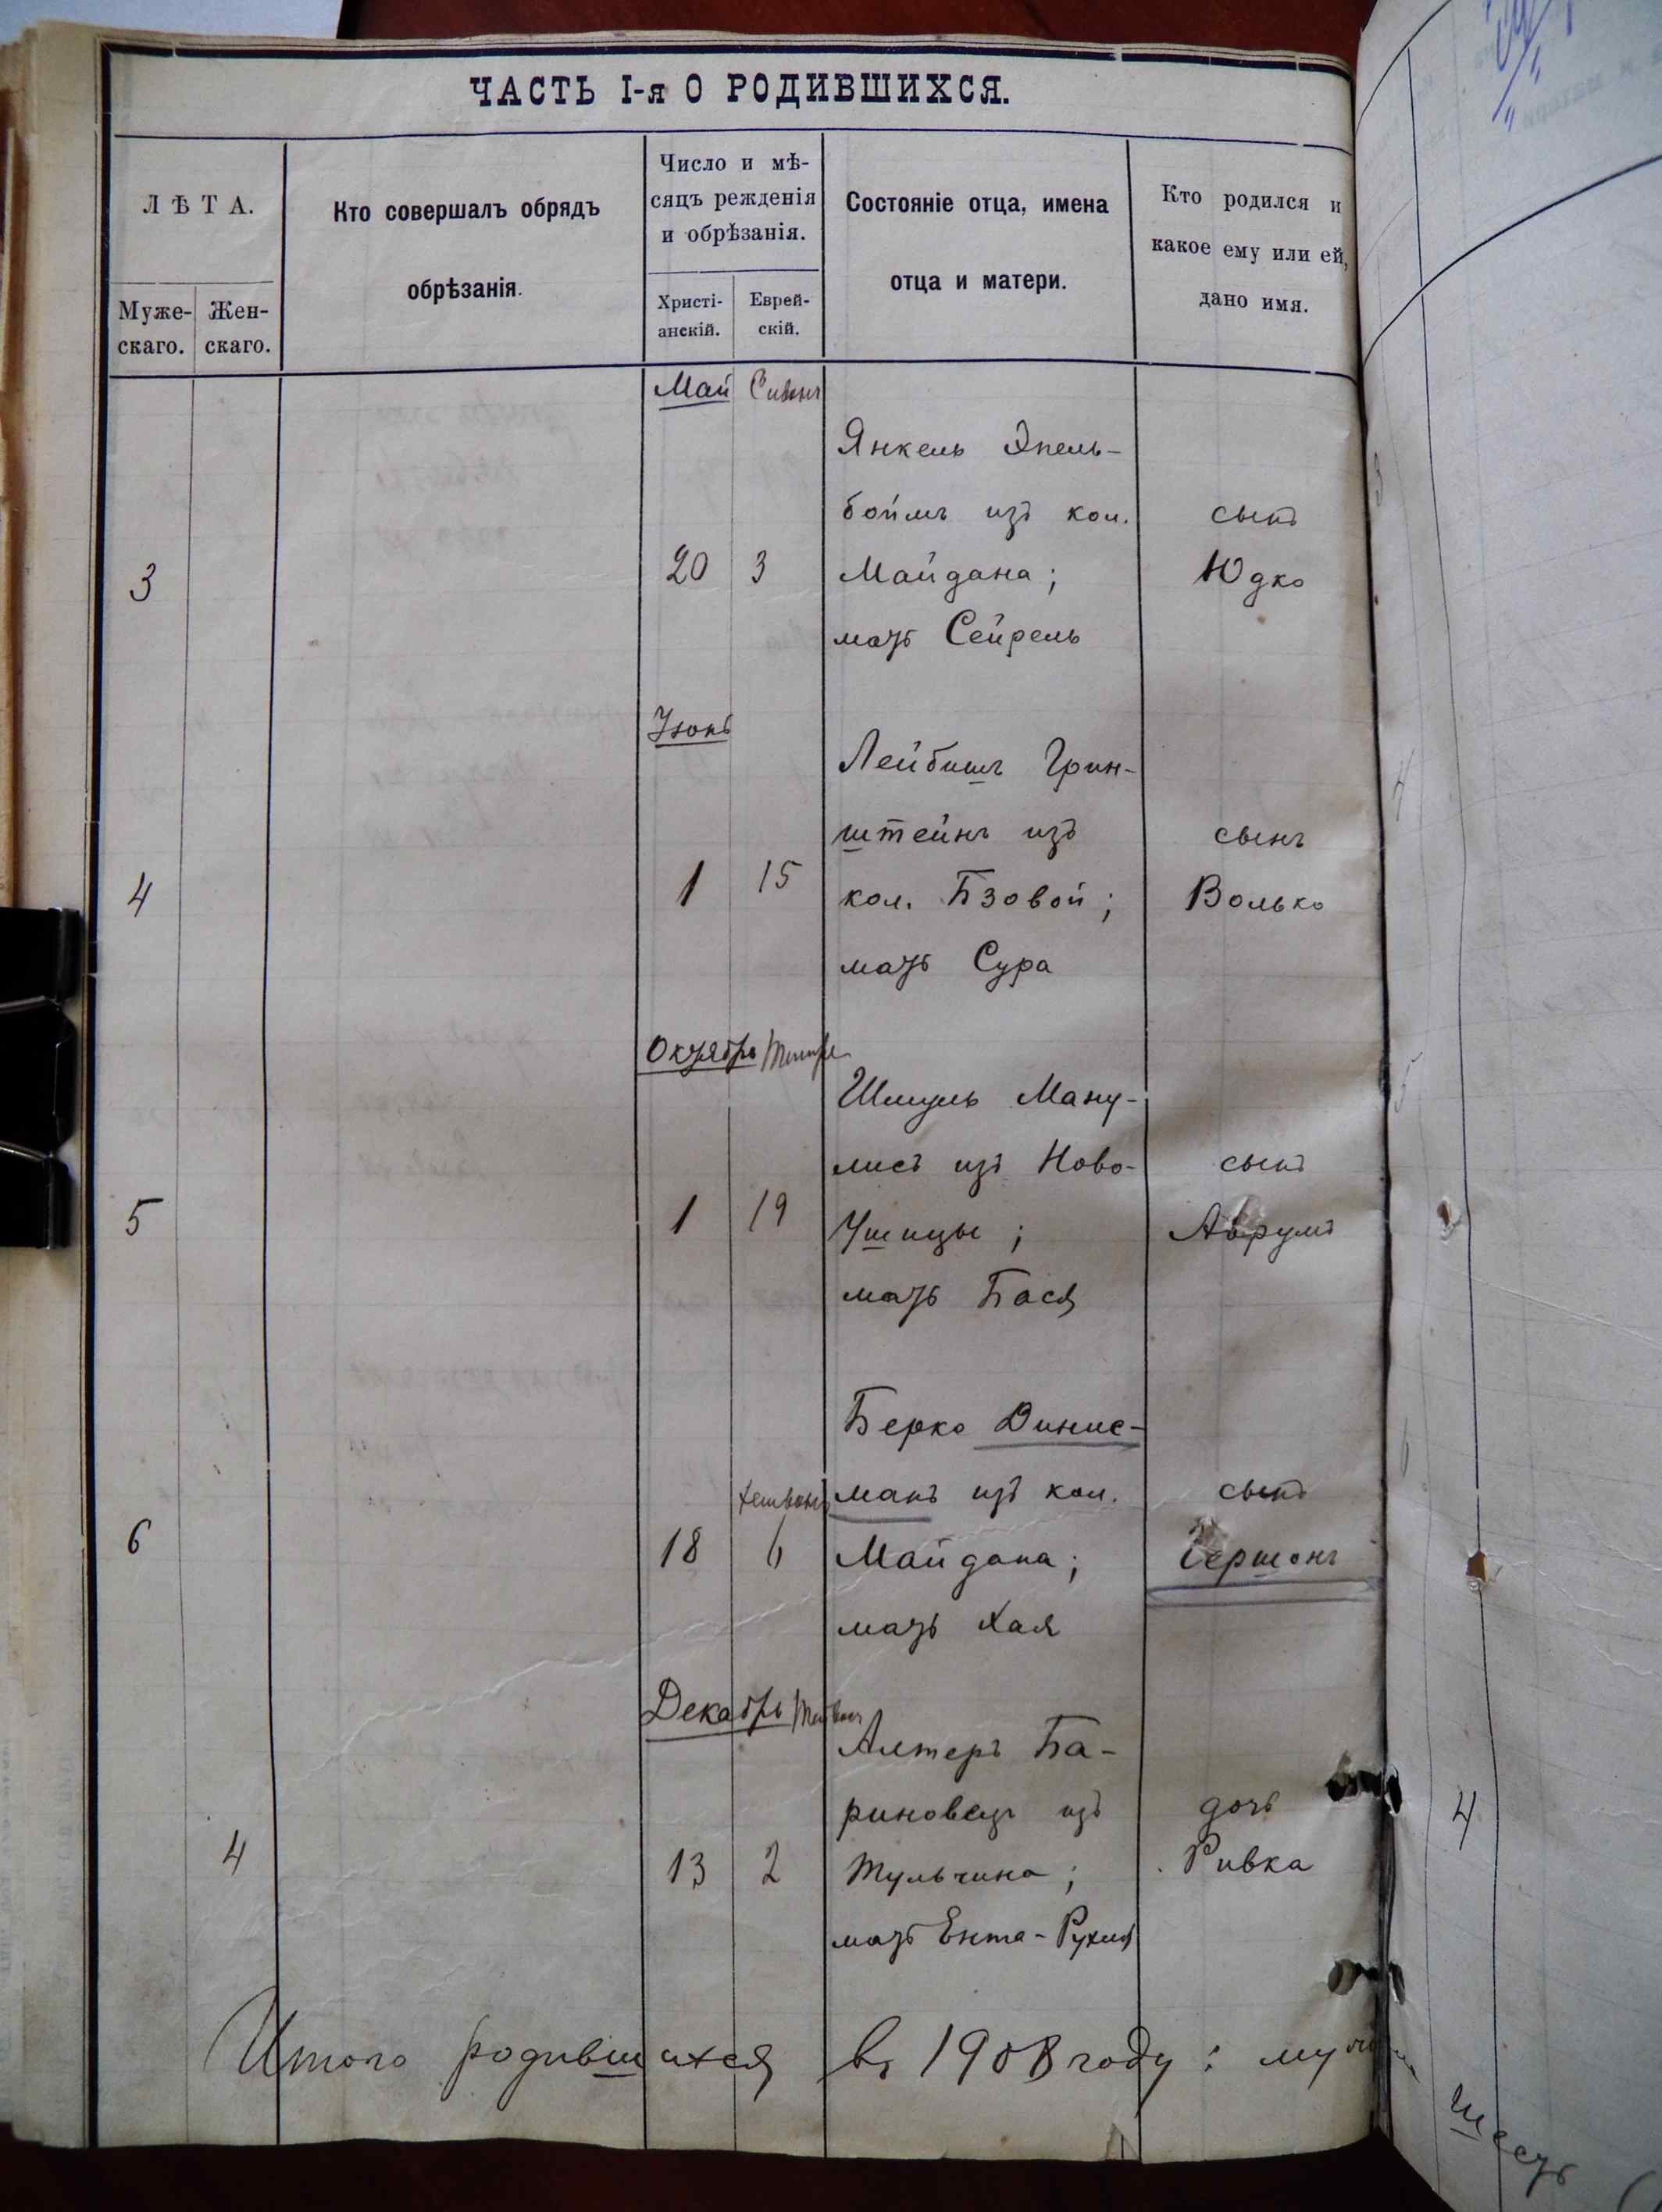 ЧАСТЬ I-я О РОДИВШИХСЯ.
ЛѢТА.
Муже-
скаго.
Жен-
скаго.
Кто совершалъ обрядъ
обрѣзанія.
Число и мѣ-
сяцъ режденія
и обрѣзанія.
Христі-
анскій.
Еврей-
скій.
Состояніе отца, имена
отца и матери.
Кто родился и
какое ему или ей,
дано имя.
Май Сивонъ
Янкель Эпель-
боймъ изъ кол. сынъ
3 20 3 Майдана; Юдко
мать Сейрель
Іюнь
Лейбишъ Грин-
штейнъ изъ сынъ
4 1 15 кол. Бзовой; Волько
мать Сура
Октябрь Тишре
Шмуль Ману-
лисъ изъ Ново- сынъ
5 1 19 Ушицы; Аврумъ
мать Бася
Берко Динис-
Хешвонъ манъ изъ кол. сынъ
6 18 6 Майдана; Гершонъ
мать Хая
Декабрь
Алтеръ Ба-
риновецъ изъ дочь
4 13 2 Тульчина; Ривка 4
мать Ента-Рухля
Итого родившихся въ 1908 году:
шесть